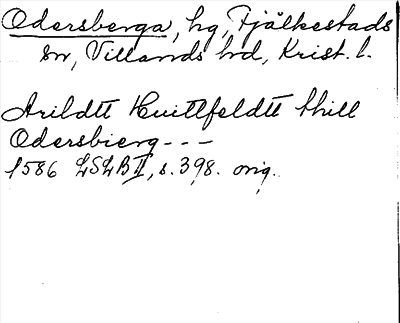 Odersberga, hg, Fjälkestads
sn, Villands hd, Krist. l.
Arildtt Huittfeldtt thill
Odersbierg - - -
1586 LSLB II, s. 398. orig.